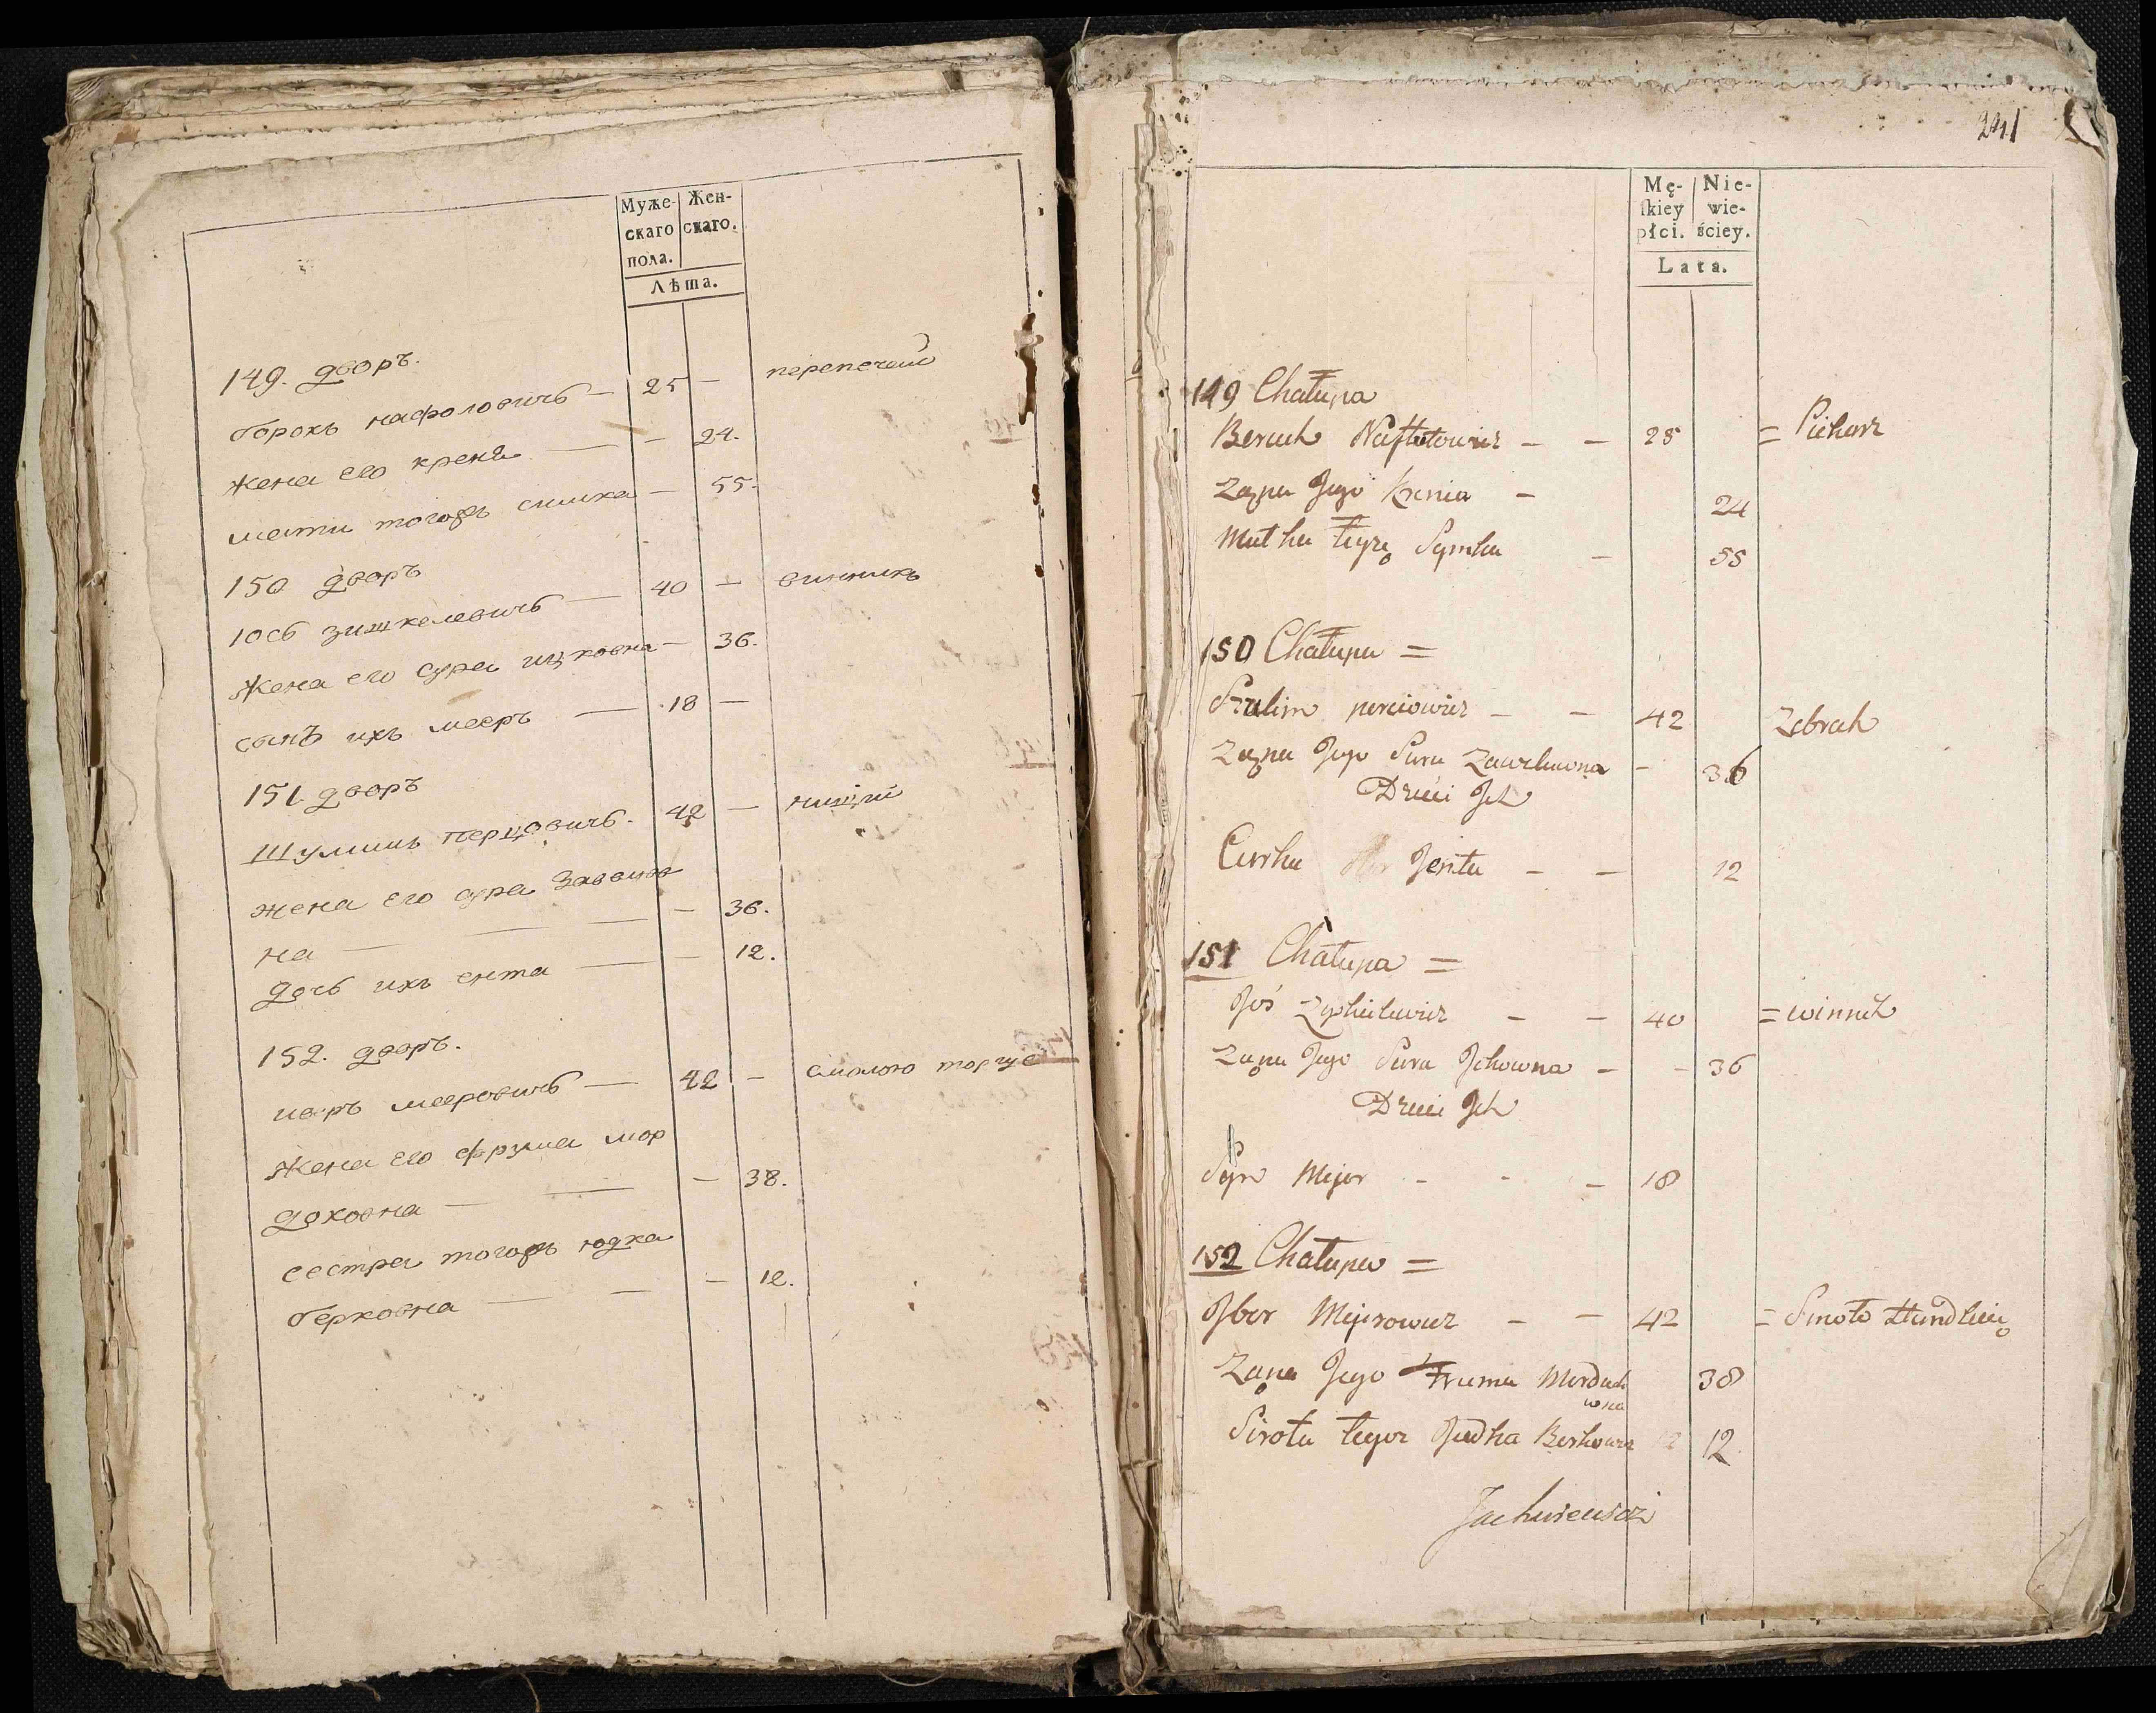 Муже- Жен-
скаго скаго.
пола.
Лѣта.
149. дворъ.
борохъ нафтоловичь — 25 — перепечай
жена его креня — — 24.
мати тогожъ симка — 55.
150 дворъ
Юсь зишкелевичь — 40 — винникъ
жена его сура ицковна — 36.
сынъ ихъ мееръ — 18 —
151 дворъ
Шулимъ перцовичь. 42 — нищий
жена его сура завелов
на — — — 36.
дочь ихъ ента — — 12.
152. дворъ.
иберъ мееровичь — 42 — смолою торгуе
жена его фрума мор
доховна — — — 38.
сестра тогожъ юдка
берковна — — — 12.
241
Mę- Nie-
skiey wie-
płci. ściey.
Lata.
149 Chałupa
Beruch Naftołowicz — — 25 = Piekarz
Zona Jego Krenia — 24
Matka tegoż Symka — 55
150 Chałupa =
Szulim perciowicz — — 42 Zebrak
Zona Jego Sura Zawelowna — 36
Dzieci Ich
Curka Jenta — — 12
151 Chałupa =
Joś Zyskielewicz — — 40 = winnik
Zona Jego Sura Ickowna — — 36
Dzieci Ich
Syn Mejer - - — 18
152 Chałupa =
Iber Mejerowicz — — 42 = Smoło Handluie
Zona Jego Fruma Morduch
owna 38
Sirota tegoz Judka Berkowna 12